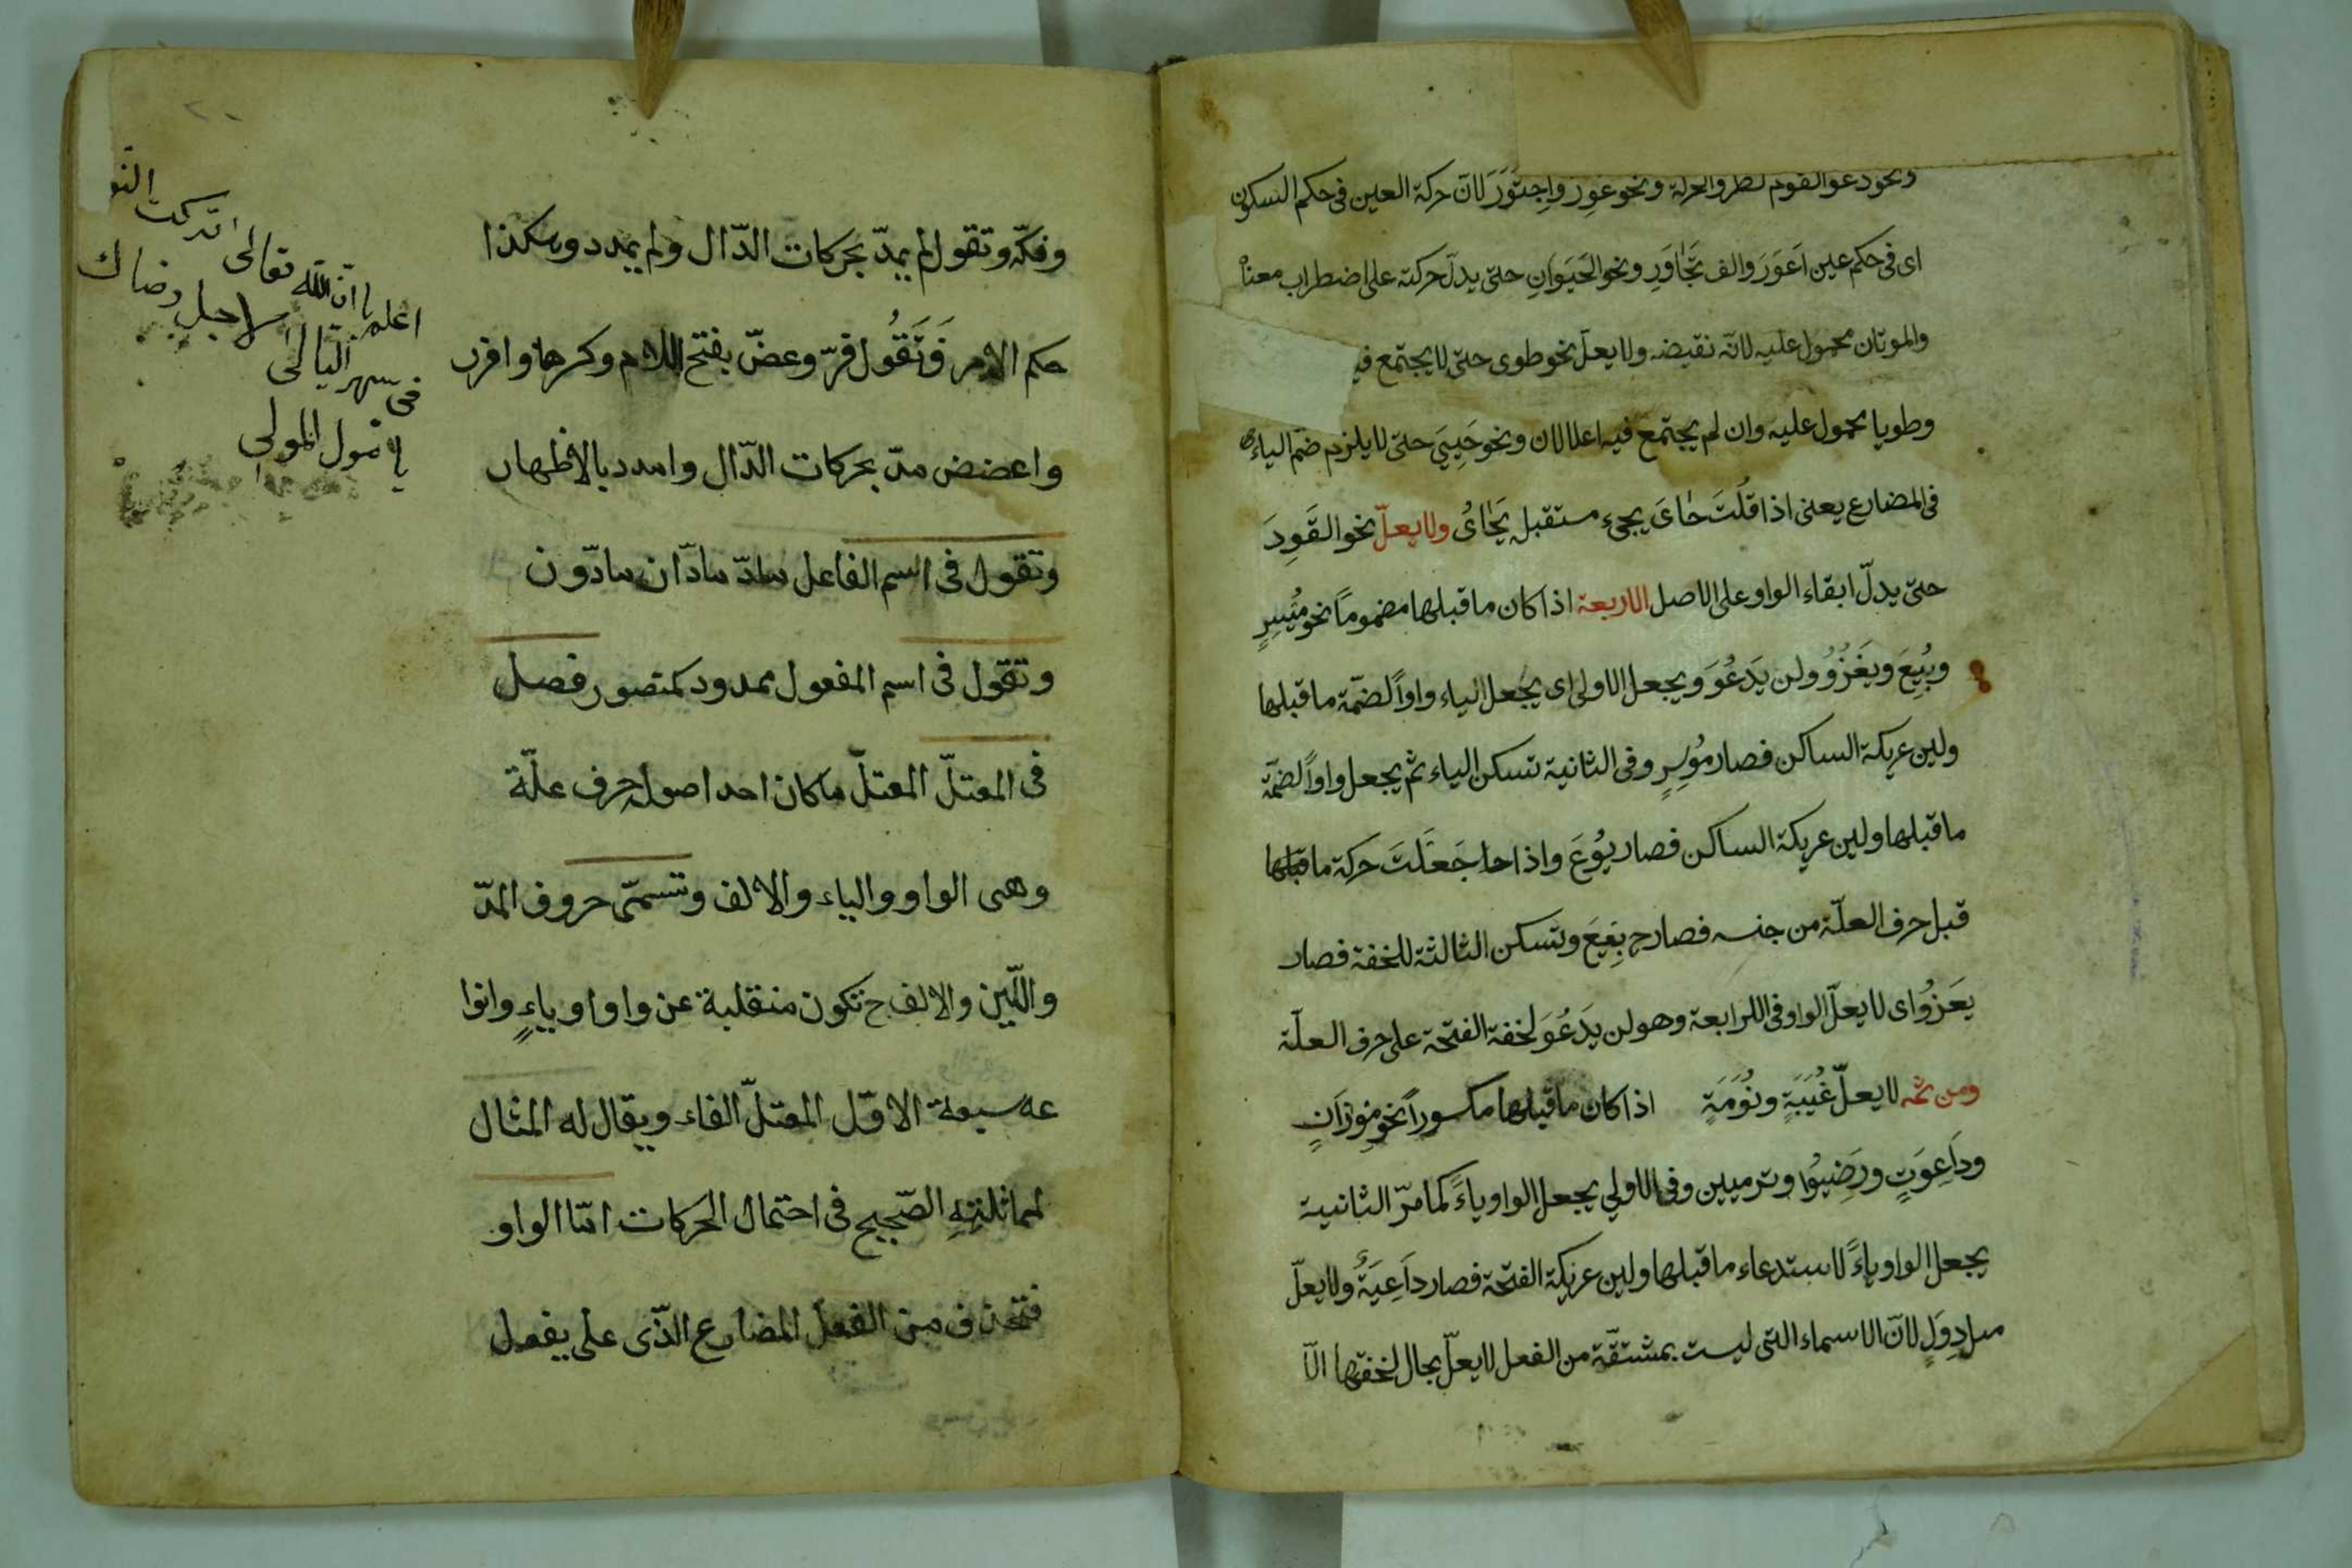 ونحو دعوا القوم لطرو الحركة ونحو عور واجتور لان حركة العين فى حكم السكون
اى فى حكم عين اعور والف تجاور ونحو الحيوان حتى يدل حركته على اضطراب معناه
والموتان محمول عليه لانه نقيضه ولا يعل نحو طوى حتى لا يجتمع فيه
وطويا محمول عليه وان لم يجتمع فيه اعلالان ونحو حيى حتى لا يلزم ضم الياء
فى المضارع يعنى اذا قلت حاى يجىء مستقبل يحاى ولا يعل نحو القود
حتى يدل ابقاء الواو على الاصل الاربعة اذا كان ما قبلها مضموماً نحو ميسر
وبيع ويغزو ولن يدعو ويجعل الاولى اى يجعل الياء واواً لضمة ما قبلها
ولين عريكة الساكن فصار موسر وفى الثانية تسكن الياء ثم يجعل واواً لضمة
ما قبلها ولين عريكة الساكن فصار بوع واذا جعلت حركة ما قبلها
قبل حرف العلة من جنسه فصار ح بيع وتسكن الثالثة للخفة فصار
يغزو اى لا يعل الواو فى الرابعة وهو لن يدعو لخفة الفتحة على حرف العلة
ومن ثمه لا يعل غيبة ونومة اذا كان ما قبلها مكسوراً نحو موزان
وداعوة ورضيوا وترميين وفى الاولى يجعل الواو ياءً كما مر الثانية
يجعل الواو ياءً لاستدعاء ما قبلها ولين عريكة الفتحة فصار داعية ولا يعل
مثل دول لان الاسماء التى ليست بمشتقة من الفعل لا يعل بحال لخفتها الا
وفكه وتقول لم يمدّ بحركات الدّال ولم يمدد وهكذا
حكم الامر فتقول فرّ وعضّ بفتح اللام وكسرها وافرر
واعضض مدّ بحركات الدّال وامدد بالاظهار
وتقول فى اسم الفاعل مادّ مادّان مادّون
وتقول فى اسم المفعول ممدود كمنصور فصل
فى المعتلّ المعتلّ ما كان احد اصوله حرف علّة
وهى الواو والياء والالف وتسمّى حروف المدّ
واللّين والالف ح تكون منقلبة عن واو او ياءٍ وانوا
عه سبعة الاوّل المعتلّ الفاء ويقال له المثال
لمماثلته الصّحيح فى احتمال الحركات امّا الواو
فتحذف من الفعل المضارع الّذى على يفعل
اعلم يا ان الله تعالى اتركت النو
فى سهر الليالى لاجل رضاك
يا مولى